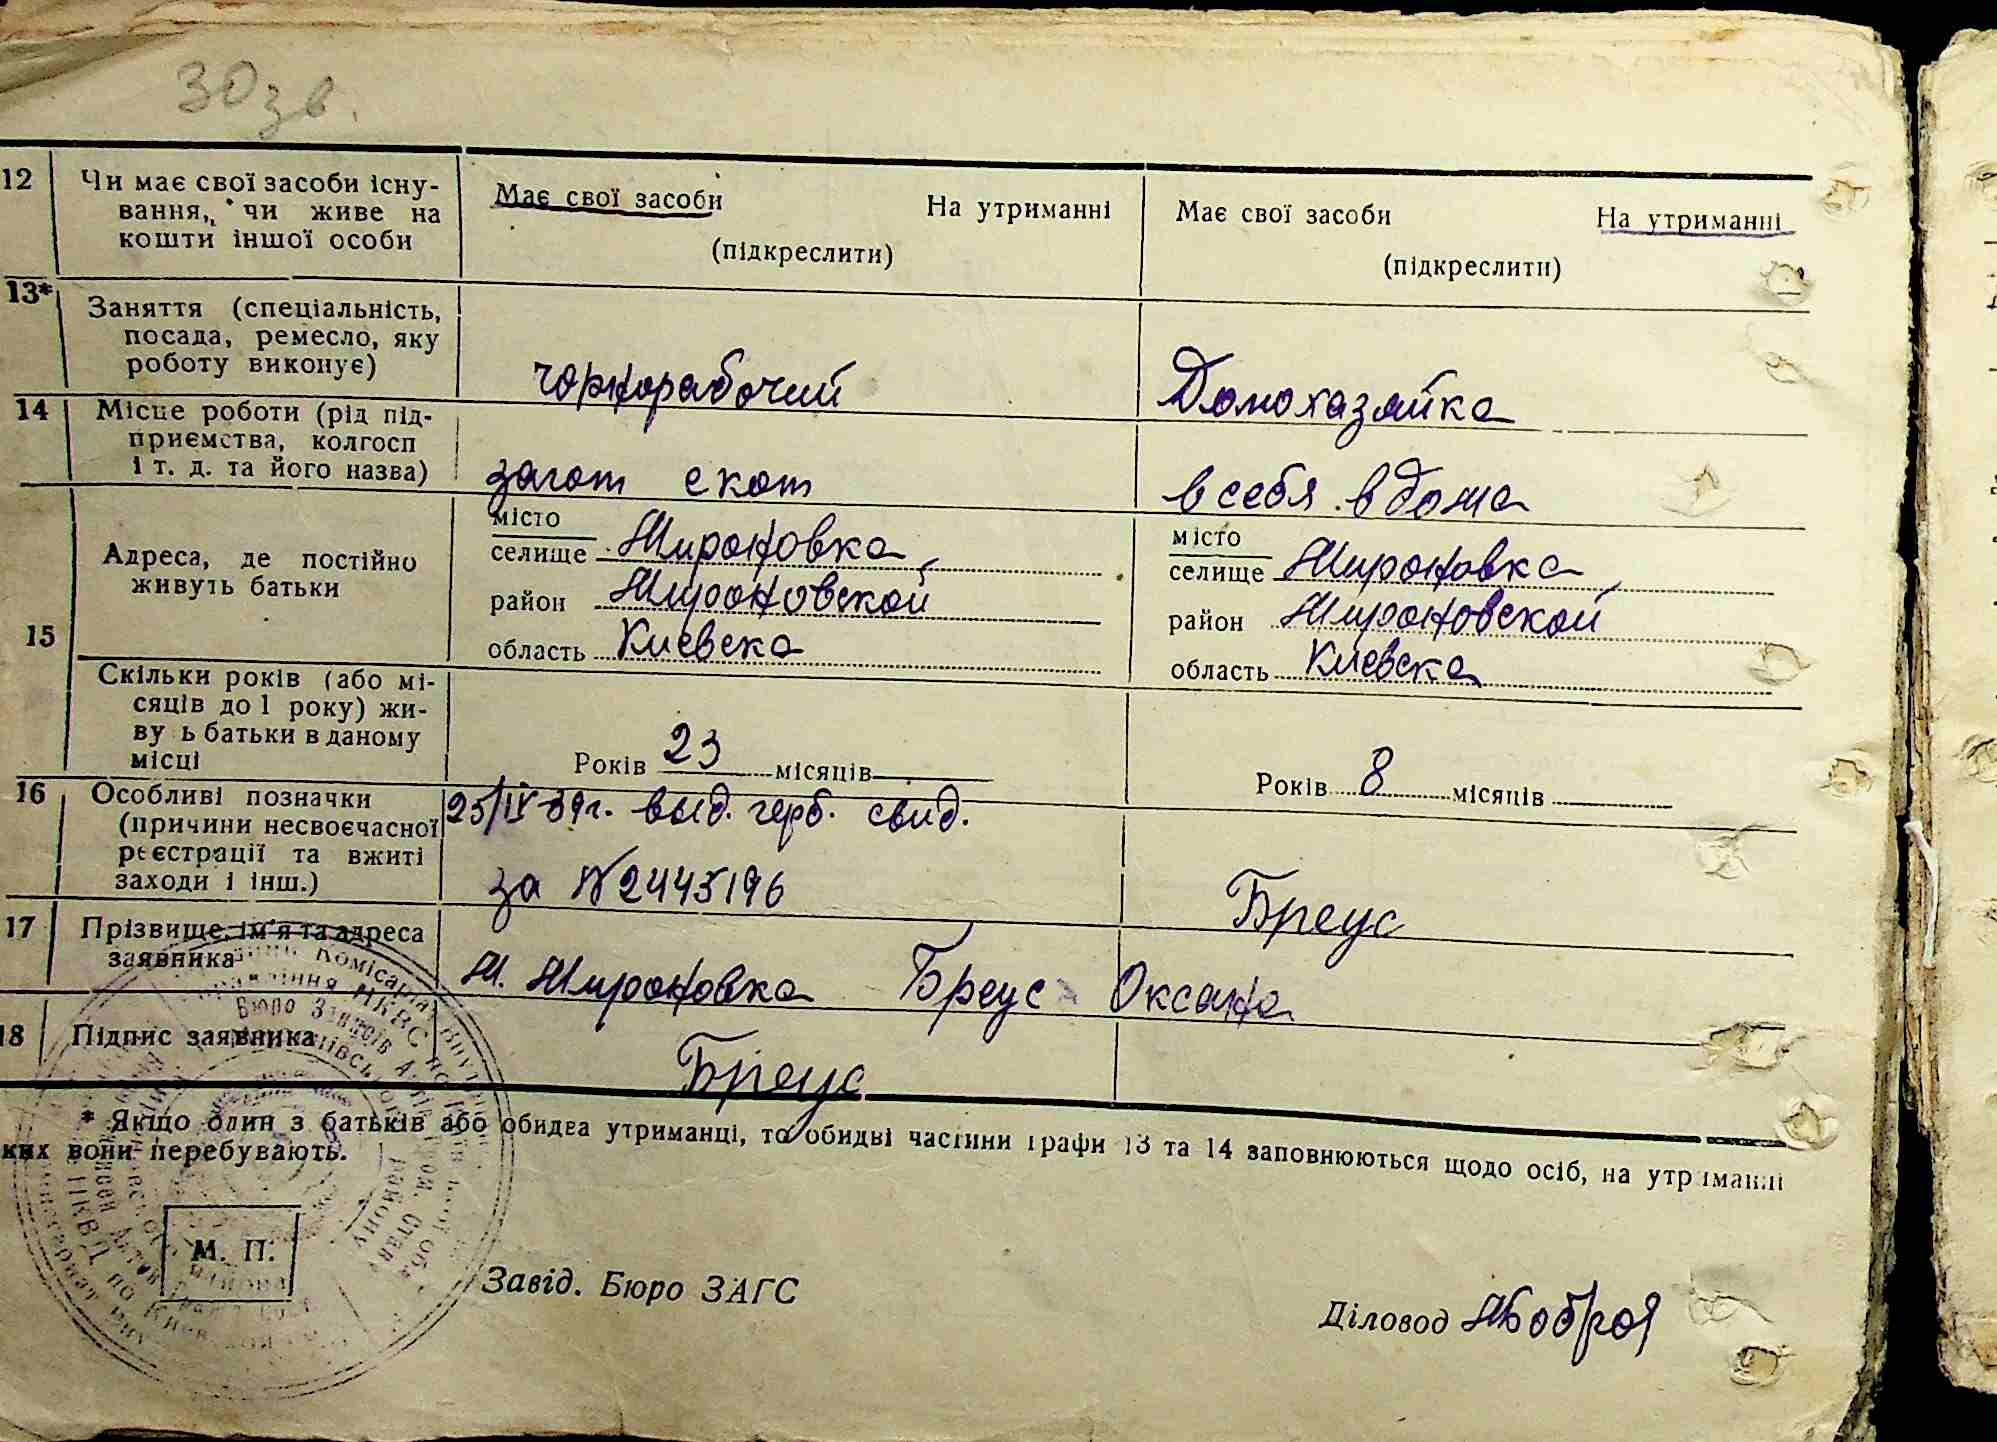 30 зв.
12 Чи має свої засоби існу-
вання, чи живе на
кошти іншої особи
Має свої засоби На утриманні
(підкреслити)
Має свої засоби На утриманні
(підкреслити)
13* Заняття (спеціальність,
посада, ремесло, яку
роботу виконує)
чорнорабочий
Домохазяйка
14 Місце роботи (рід під-
приємства, колгосп
і т. д. та його назва)
загот скот
в себя в дома
15 Адреса, де постійно
живуть батьки
місто
селище Мироновка,
район Мироновской
область Киевска
місто
селище Мироновка,
район Мироновской
область Киевска
Скільки років (або мі-
сяців до 1 року) жи-
ву ь батьки в даному
місці
Років 23 місяців
Років 8 місяців
16 Особливі позначки
(причини несвоєчасної
реєстрації та вжиті
заходи і інш.)
25/IV-39г. выд. герб. свид.
за №2445196
Бреус
17 Прізвище, ім'я та адреса
заявника
М. Мироновка Бреус Оксана
18 Підпис заявника
Бреус
* Якщо один з батьків або обидва утриманці, то обидві частини графи 13 та 14 заповнюються щодо осіб, на утриманні
ких вони перебувають.
М. П.
Завід. Бюро ЗАГС
Діловод